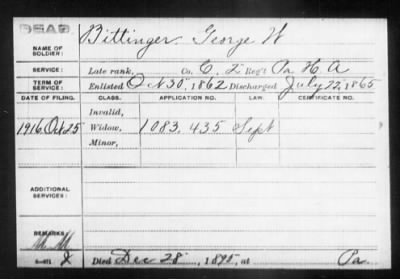 DEAD
NAME OF SOLDIER: Bittinger George W
SERVICE: Late rank, Co. C. 2 Reg't Pa H A
TERM OF SERVICE: Enlisted Oct 30, 1862 Discharged July 22, 1865
DATE OF FILING. CLASS. APPLICATION NO. LAW. CERTIFICATE NO.
Invalid,
1916 Oct 25 Widow, 1083.435 Sept
Minor,
ADDITIONAL SERVICES:
REMARKS:
Died Dec 28, 1895, at Pa.